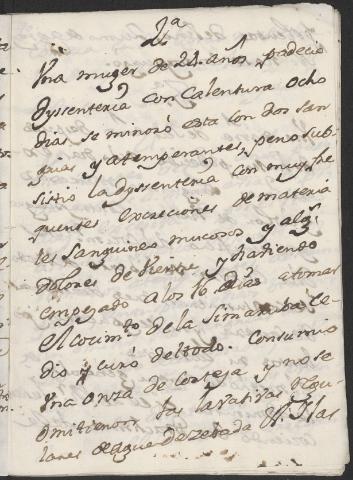 2.ª
Una muger de 24. años padecio
dyssenteria con Calentura ocho
dias se minoró esta con dos san
grias y atemperantes, pero sub
sistio la Dyssenteria con muy fre
quentes excreciones de materia
les sanguineo mucosos y alg.s
Dolores de Vientre, y haviendo
empezado a los 16. dias a tomar
el Cocim.to de la Simarruba ce
dio y curó del todo. Consumio
una onza de Corteza y no se
omitieron las lavativas
lares de agua de zebada V. Mas